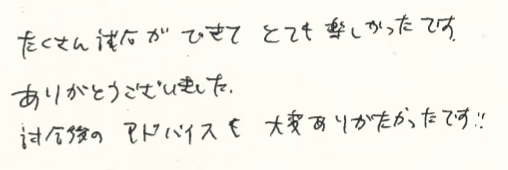 たくさん試合ができて とても楽しかったです。
ありがとうございました.
試合後の アドバイスも 大変ありがたかったです!!